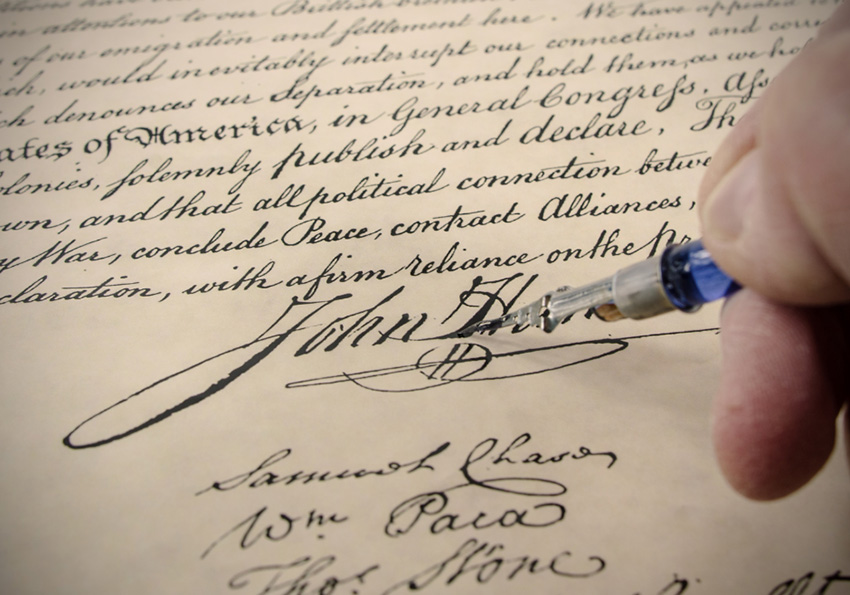 in attentions to our Brittish
of our emigration and settlement here. We have appealed
would inevitably interrupt our connections and
denounces our Separation, and hold them, as we
ates of America, in General Congress,
olonies, solemnly publish and declare, Th
wn, and that all political connection betwe
War, conclude Peace, contract Alliances,
claration, with a firm reliance on the pr
John H
Samuel Chase
Wm. Paca
Thos. Stone